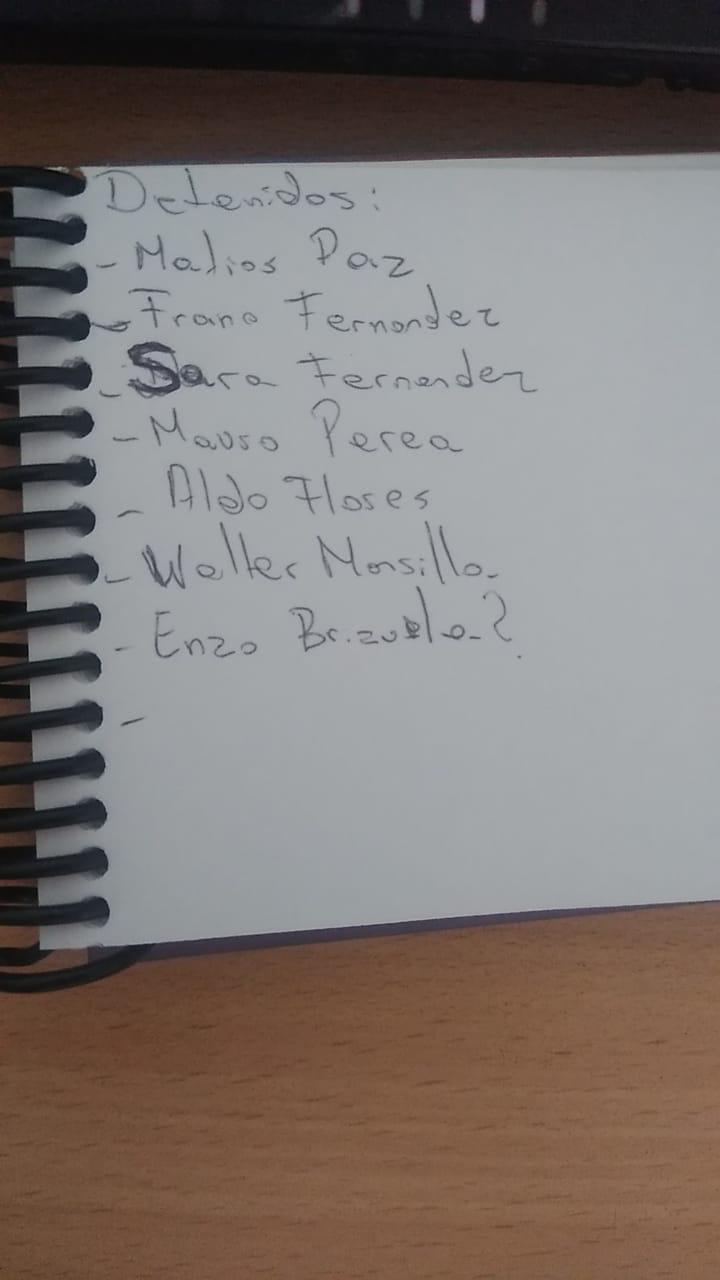 Detenidos:
- Matios Paz
- Frano Fernandez
- Sara Fernandez
- Mauro Perea
- Aldo Flores
- Walter Mansilla.
- Enzo Brizuela.?
-